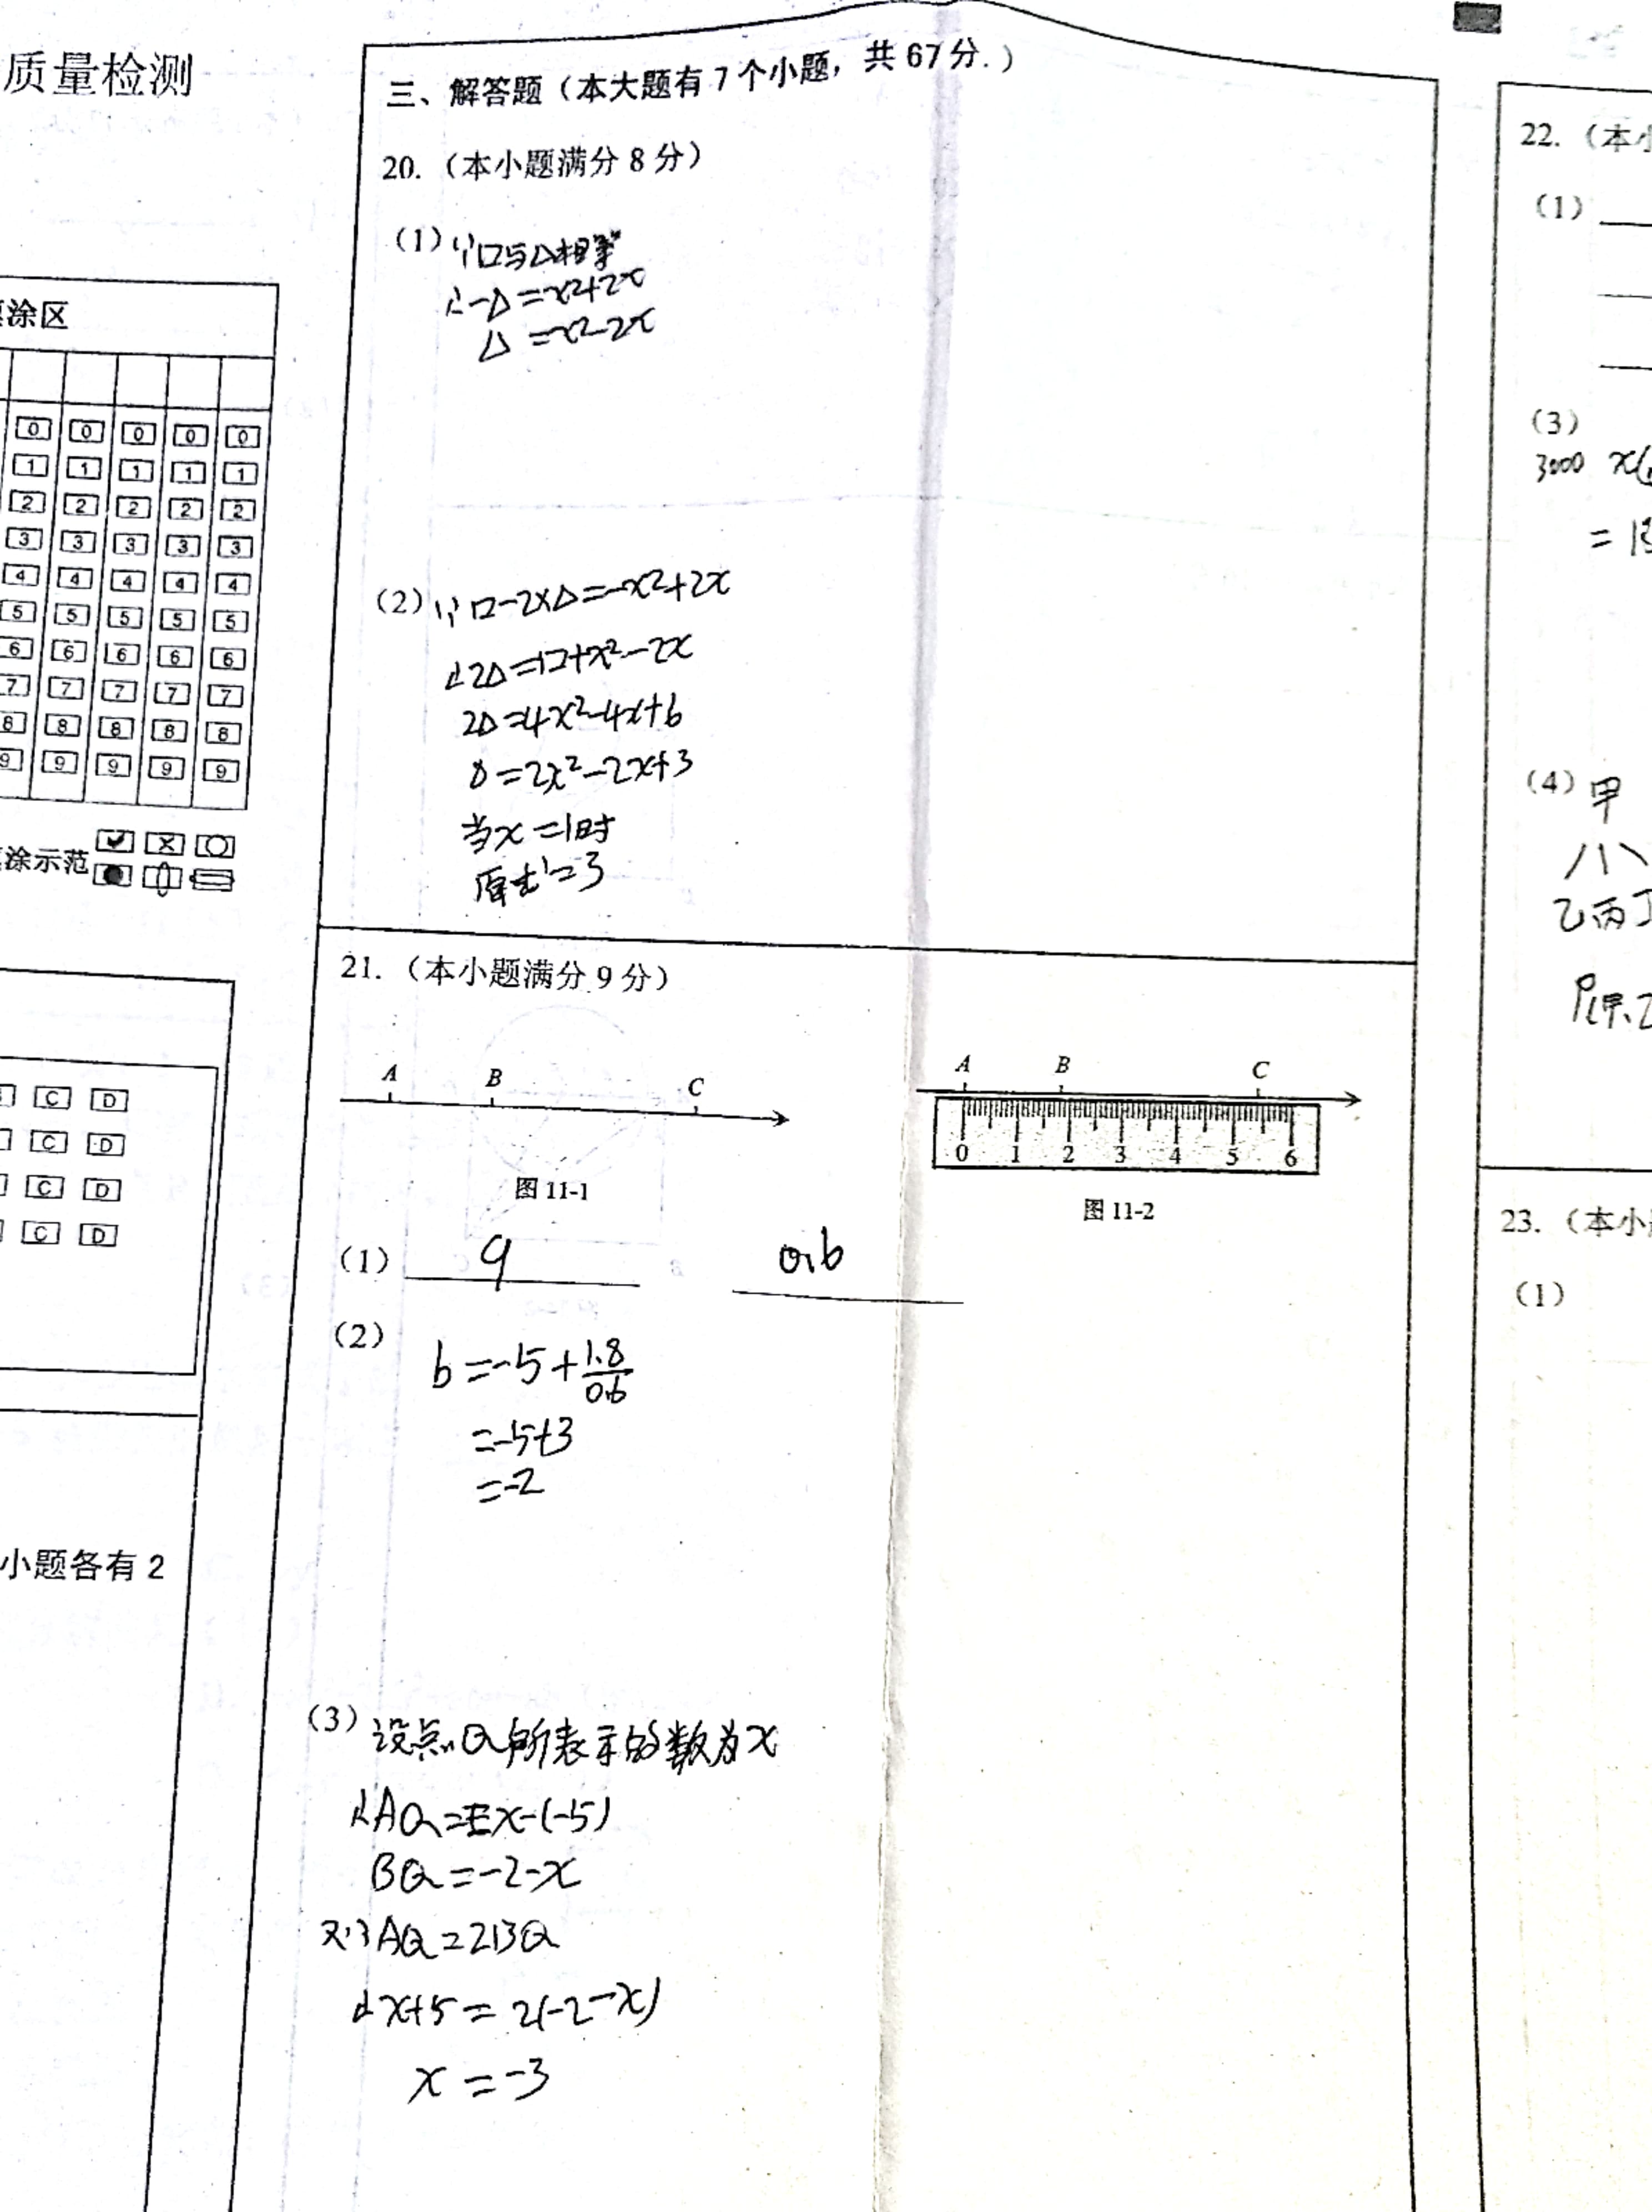 质量检测
涂区
0 0 0 0 0
1 1 1 1 1
2 2 2 2 2
3 3 3 3 3
4 4 4 4 4
5 5 5 5 5
6 6 6 6 6
7 7 7 7 7
8 8 8 8 8
9 9 9 9 9
涂示范
C D
C D
C D
C D
小题各有 2
三、解答题（本大题有 7 个小题，共 67 分.）
20.（本小题满分 8 分）
（1）∵□与△相等
∴-△=-x²+2x
△=x²-2x
（2）∵□-2×△=-x²+2x
∴2△=□+x²-2x
2△=4x²-4x+6
△=2x²-2x+3
当x=1时
原式=3
21.（本小题满分 9 分）
A B C
图 11-1
A B C
0 1 2 3 4 5 6
图 11-2
（1） 9 0.6
（2）
b=-5+1.8/0.6
=-5+3
=-2
（3）设点Q所表示的数为x
∴AQ=x-(-5)
BQ=-2-x
又∵AQ=2BQ
∴x+5=2(-2-x)
x=-3
22.（本小
（1）
（3）
3000
（4）甲
乙丙丁
23.（本小
（1）